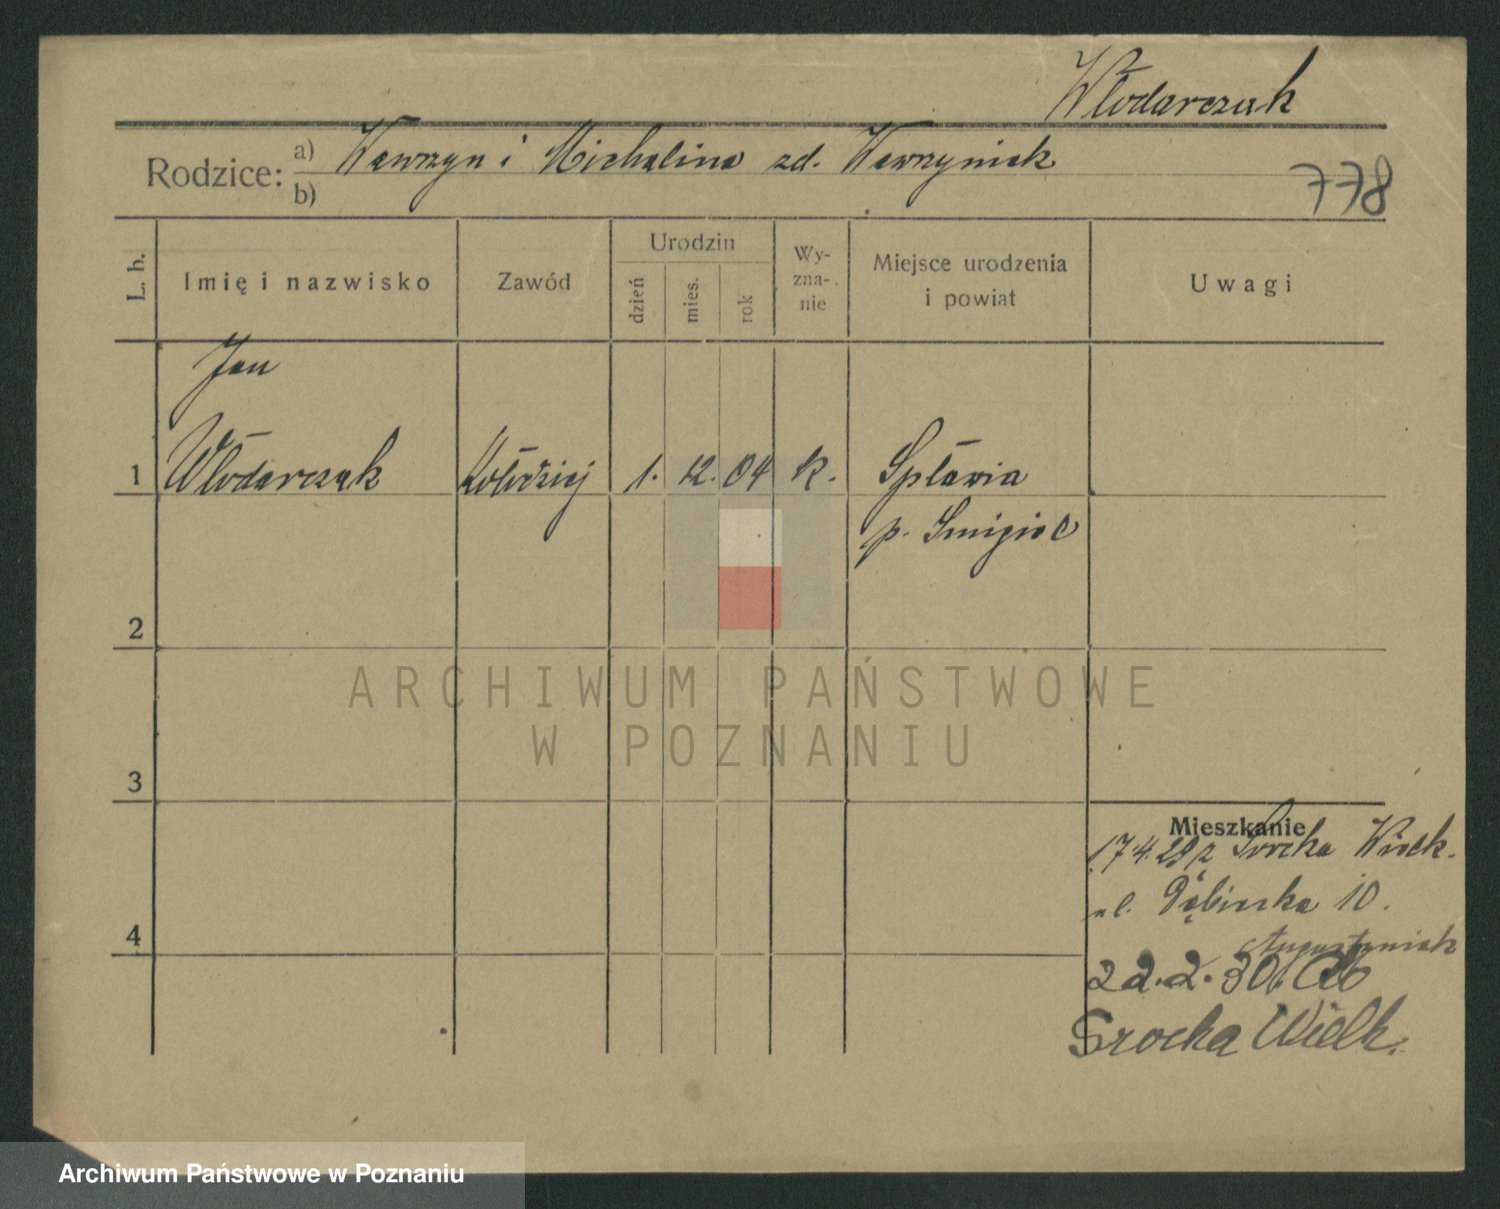 Włodarczak
Rodzice: a) Wawrzyn i Michalina zd. Wawrzyniak
b)
778
L. b.
Imię i nazwisko
Zawód
Urodzin
dzień
mies.
rok
Wy-
zna-
nie
Miejsce urodzenia
i powiat
Uwagi
Jan
1 Włodarczak Kołodziej 1. 12. 04 k. Spławia
p. Śmigiel
2
3
4
Mieszkanie
17.4.29 z Srocka Wielk.
ul. Dąbińska 10.
Augustyniak
22.2.30.
Srocka Wielk.
ARCHIWUM PAŃSTWOWE
W POZNANIU
Archiwum Państwowe w Poznaniu